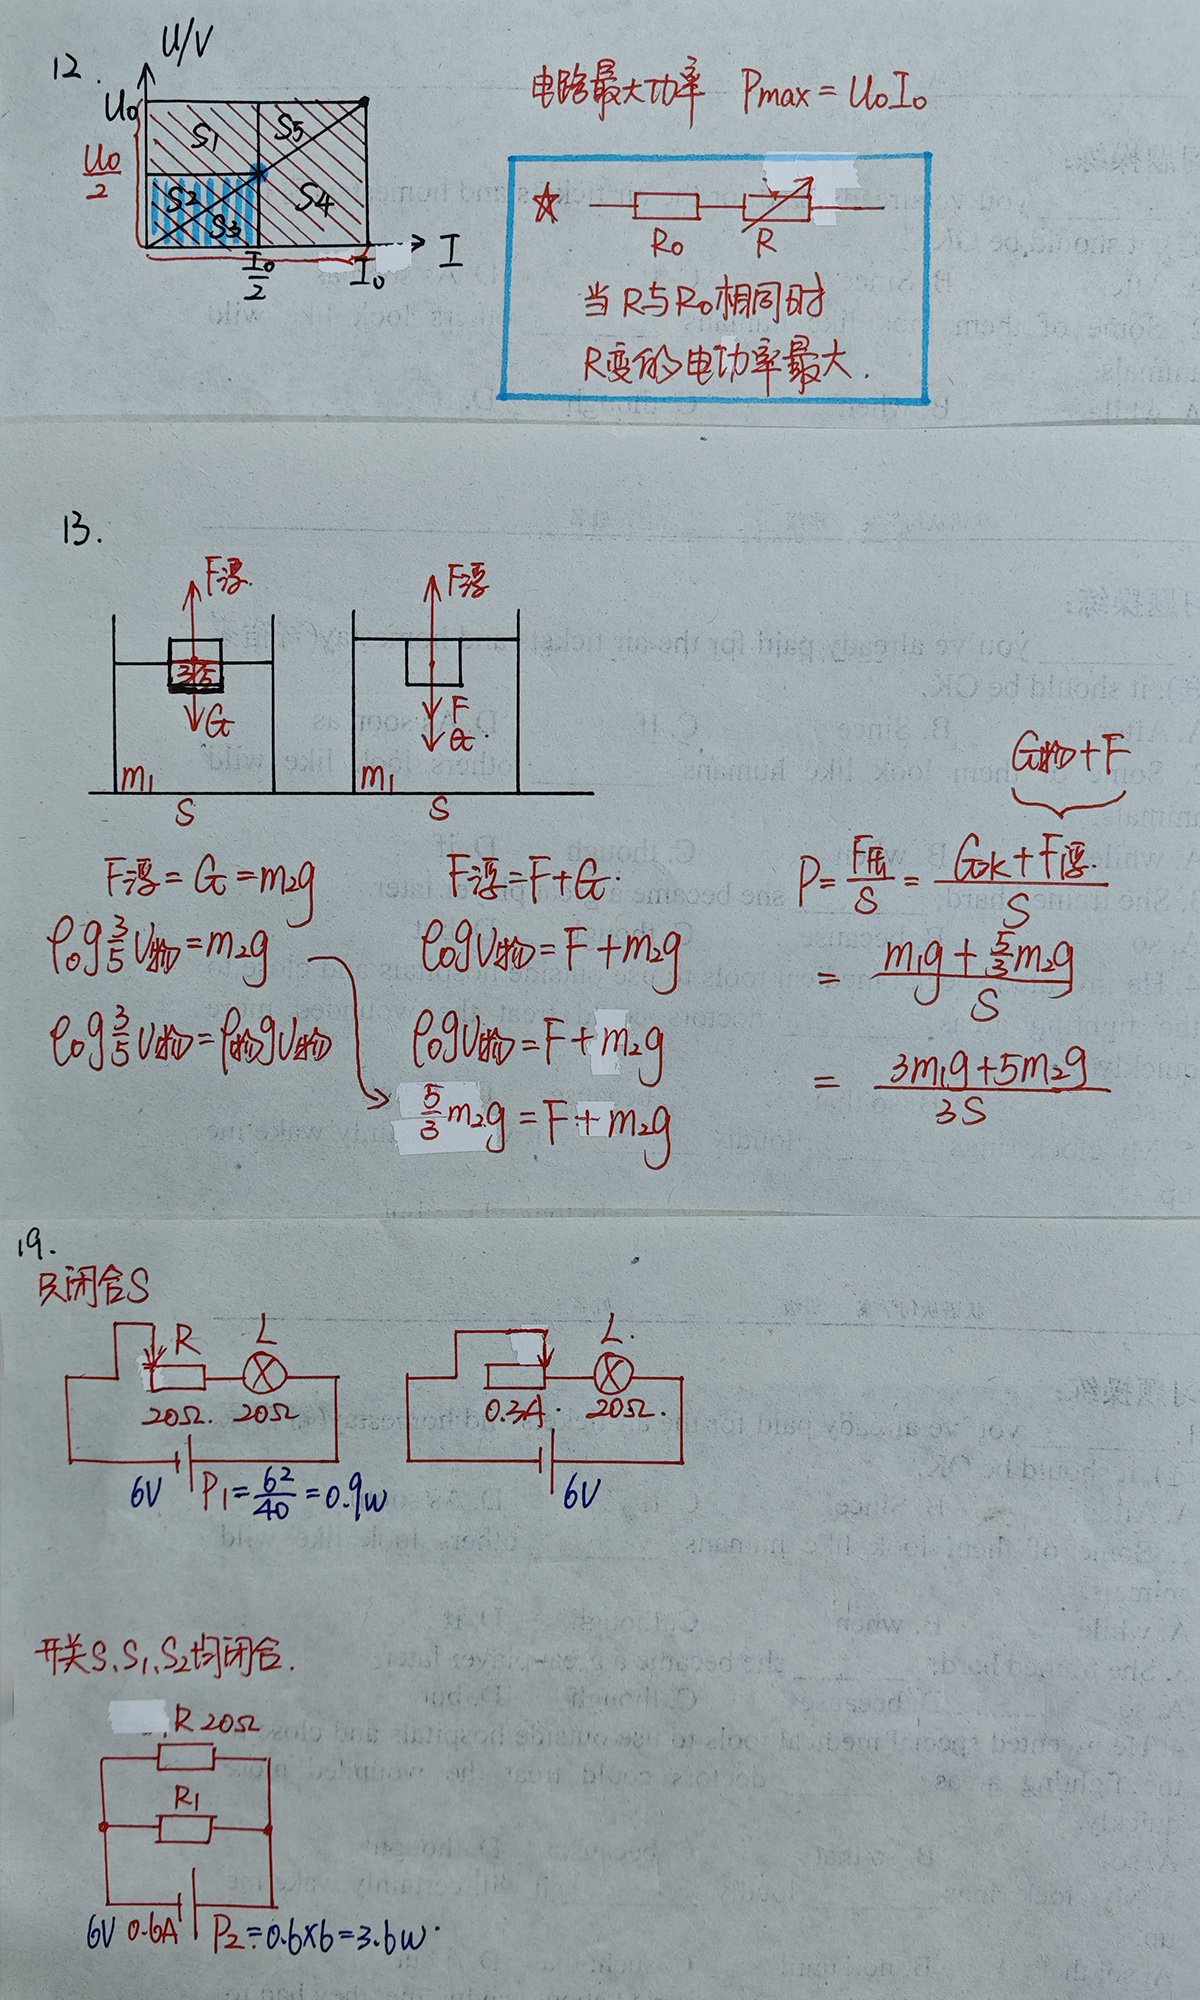 12.
U/V
U₀
U₀/2
S1
S5
S2
S3
S4
I₀/2
I₀
I
电路最大功率 Pmax = U₀I₀
☆
R₀ R
当R与R₀相同时
R变的电功率最大.
13.
F浮.
F浮
3/5
G
F
G.
m₁
m₁
S
S
F浮=G=m₂g
ρ₀g3/5V物=m₂g
ρ₀g3/5V物=ρ物gV物
F浮=F+G.
ρ₀gV物=F+m₂g
ρ₀gV物=F+m₂g
5/3m₂g=F+m₂g
G物+F
P=F压/S=(G水+F浮.)/S
=(m₁g+5/3m₂g)/S
=(3m₁g+5m₂g)/3S
19.
只闭合S
R L
20Ω. 20Ω
6V P₁=6²/40=0.9w
L.
0.3A. 20Ω.
6V
开关S、S₁、S₂均闭合.
R 20Ω
R₁
6V 0.6A P₂=0.6×6=3.6w.